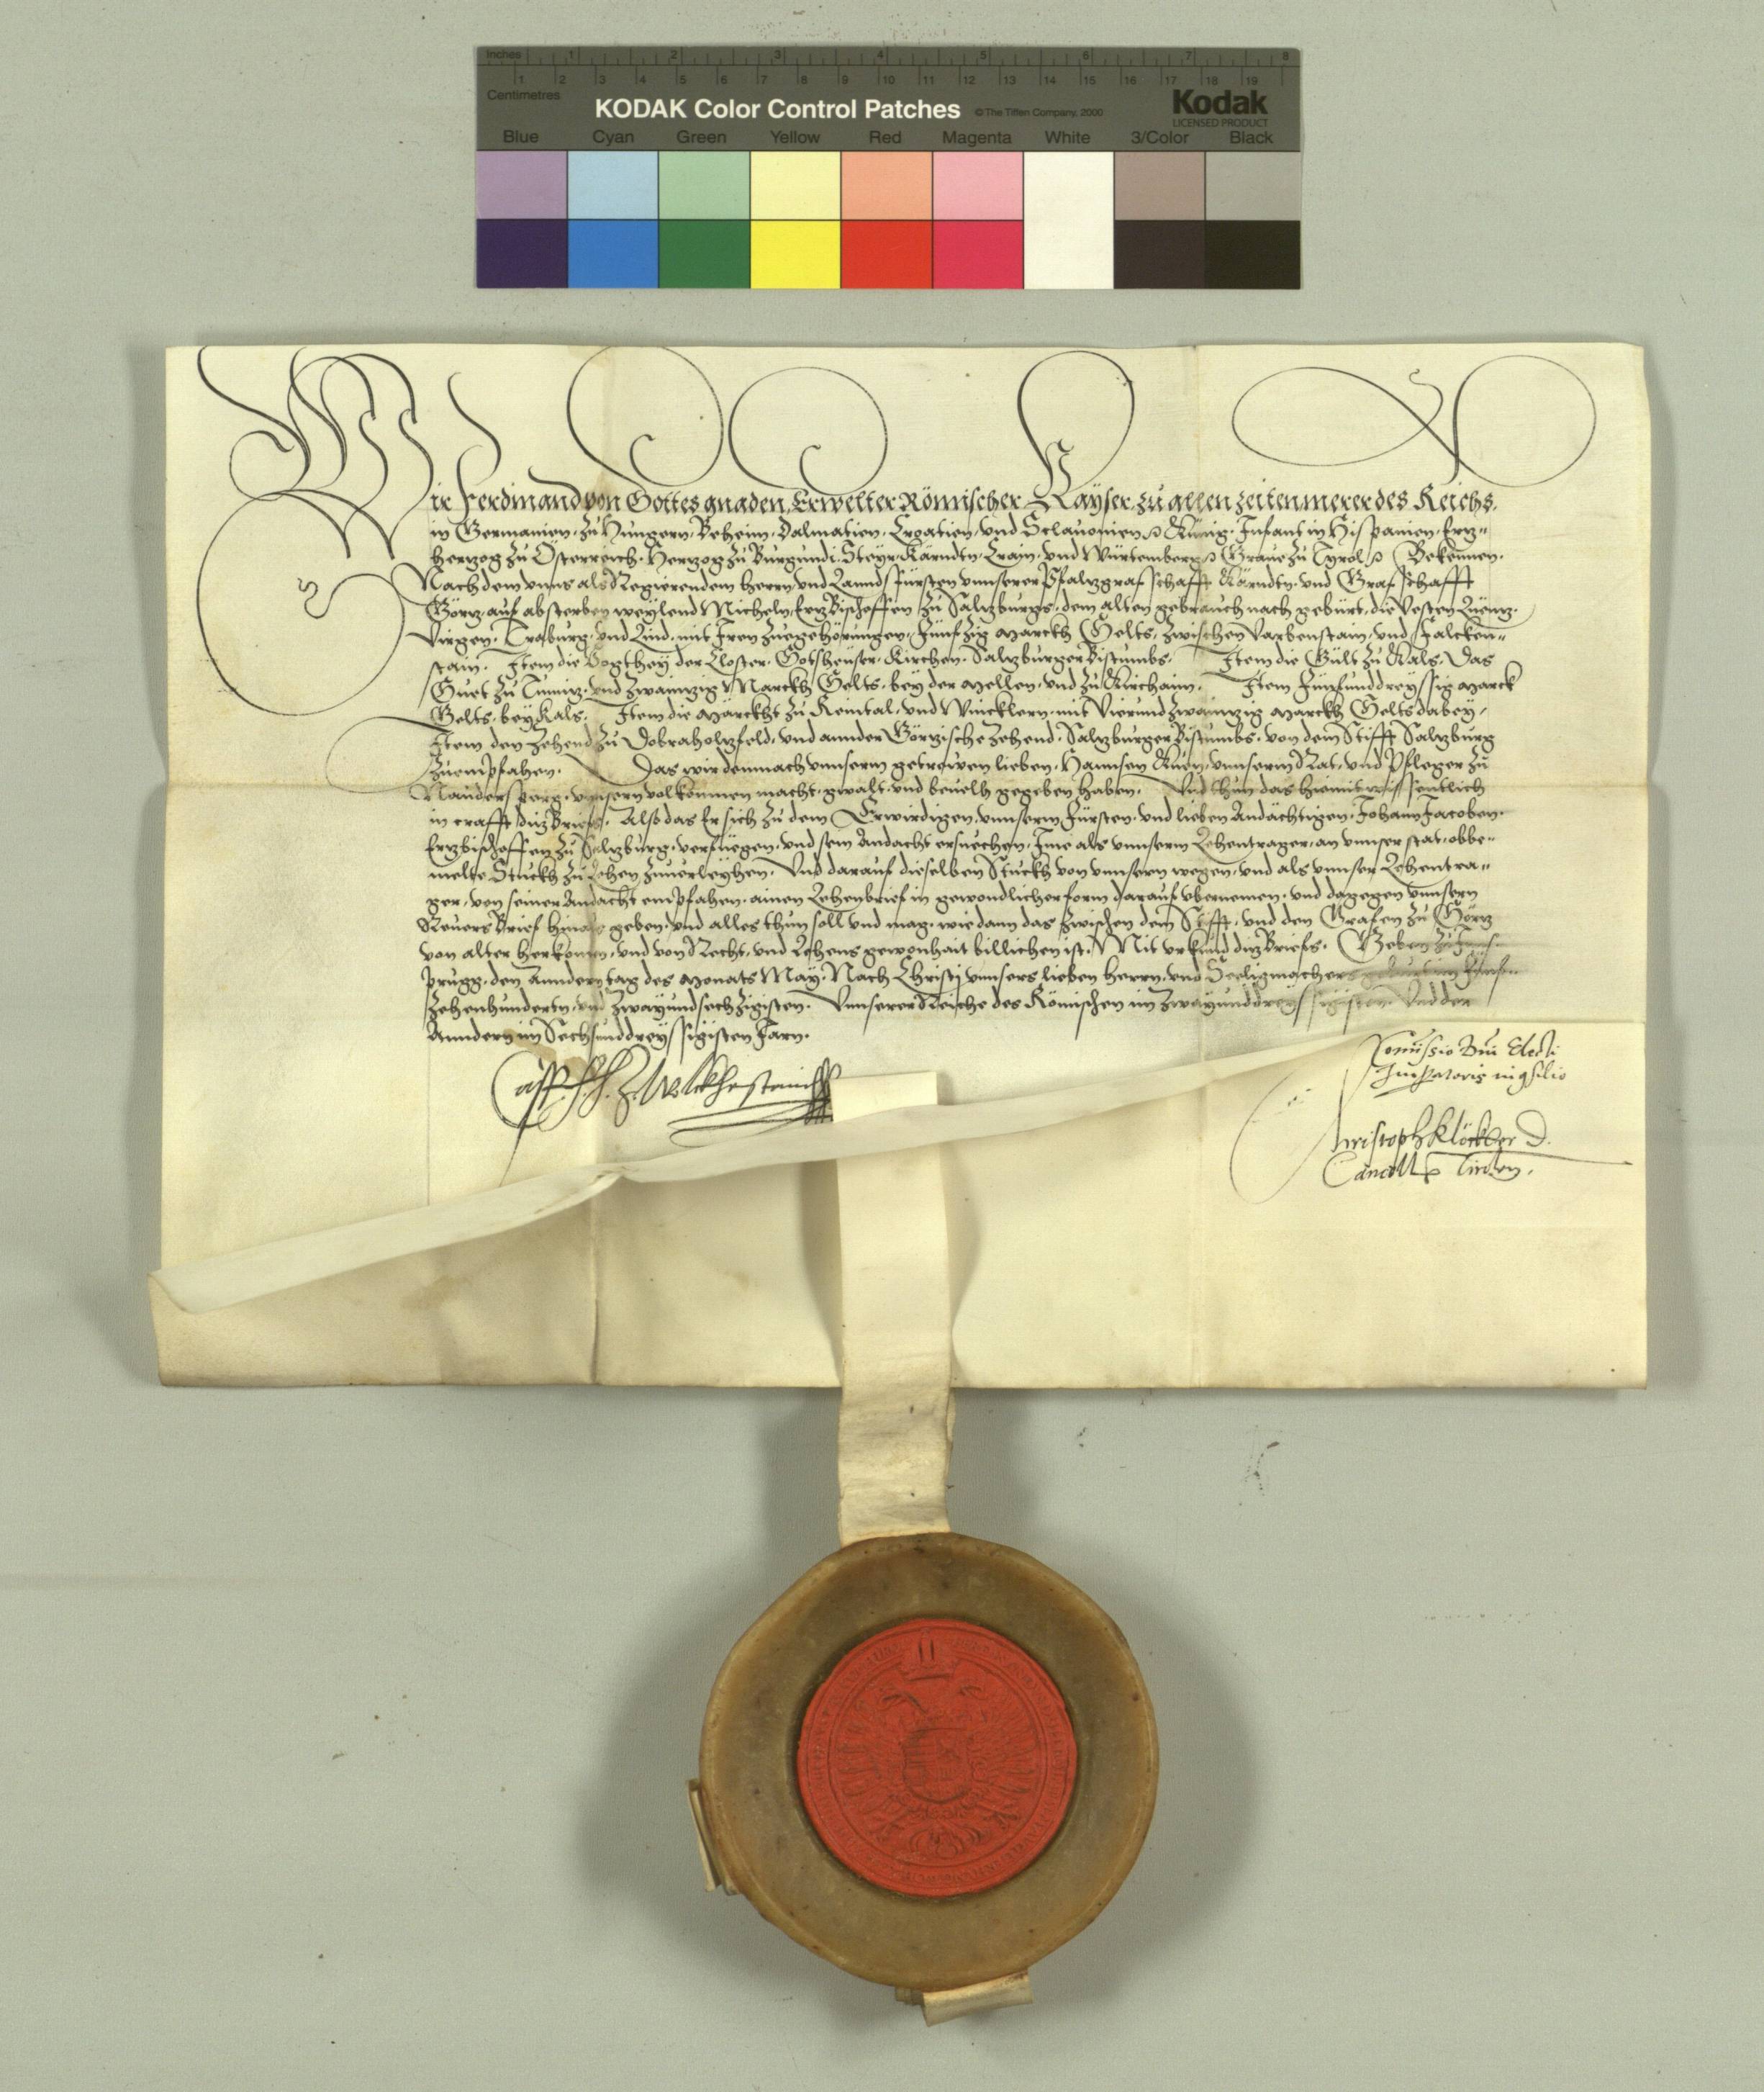 Inches 1 2 3 4 5 6 7 8
Centimetres 1 2 3 4 5 6 7 8 9 10 11 12 13 14 15 16 17 18 19
KODAK Color Control Patches © The Tiffen Company, 2000 Kodak
LICENSED PRODUCT
Blue Cyan Green Yellow Red Magenta White 3/Color Black
Wir Ferdinand von Gottes gnaden, Erwelter Römischer Kayser, zu allen zeiten merer des Reichs,
in Germanien, zu Hungern, Beheim, Dalmatien, Croatien, und Sclauonien Künig, Infant in Hispanien, Ertz-
hertzog zu Österreich, Hertzog zu Burgundi, Steyr, Kärndtn, Crain, und Würtemberg Graue zu Tyrol Bekennen.
Nachdem unns als Regierendem herrn, und Lanndsfürsten unnserer Pfaltzgrafschafft Kärndtn, und Grafschafft
Görtz, auf absterben weylend Micheln, Ertzbischoffen zu Saltzburgs, dem alten gebrauch nach gebürt, die Vesten Luentz,
Virgen, Traburg, und Lind, mit Iren zuegehörungen, Fünfzig marckh Gelts, zwischen Varbenstain, und Falcken-
stain. Item die Vogthey der Closter, Gotsheuser, Kirchen, Saltzburger Bistumbs. Item die Gült zu Kals, Das
Guet zu und zwaintzig Marckh Gelts, bey der Mellen, und zu Kirchaim. Item Fünfunddreyssig marck
Gelts, bey Kals. Item die märckht zu und mit Vierundzwaintzig marckh Gelts dabey,
Item den Zehend zu Dobraholtzfeld, und annder Görtzische Zehend, Saltzburger Bistumbs, von dem Stifft Saltzburg
zuempfahen. Das wir demnach unnserm getrewen lieben, Hannsen Kuen, unnserm Rat, und Pfleger zu
Naudersperg, unnsern volkommen macht, gwalt, und beuelh gegeben haben. Und thun das hiemit wissentlich
in crafft ditz Briefs. Also das Er sich zu dem Erwirdigen, unnserm Fürsten, und lieben Andächtigen, Johann Jacoben,
Ertzbischoffen zu Saltzburg, verfuegen, und sein Andacht ersuechen, Ime als unnserm Lehentrager, an unnser stat, obbe-
melte Stuckh zu Lehen zuuerleyhen. Und darauf dieselben Stuckh von unnsern wegen, und als unnser Lehentra-
ger, von seiner Andacht empfahen, ainen Lehenbrief in gewondlicher form darauf ubernemen, und dagegen unnsern
Reuers Brief hinaus geben, und alles thun soll und mag, wie dann das zwischen dem Stifft, und den Grafen zu Görtz
von alter herkomen, und von Recht, und Lehens gewonhait billichen ist. Mit urkund ditz Briefs. Geben zu Inns-
prugg, den Anndern tag des Monats May, Nach Christj unnsers lieben herrn, und Seeligmachers geburt im Fünf-
zehenhundertn, und Zwayundsechzigisten. Unnserer Reiche des Römischen im Zwayunddreyssigisten. Und der
Anndern im Sechsunddreyssigisten Jarn.
Comissio Dni Electi
Imperatoris in 9silio
Christoph Klöckler D.
Cancell